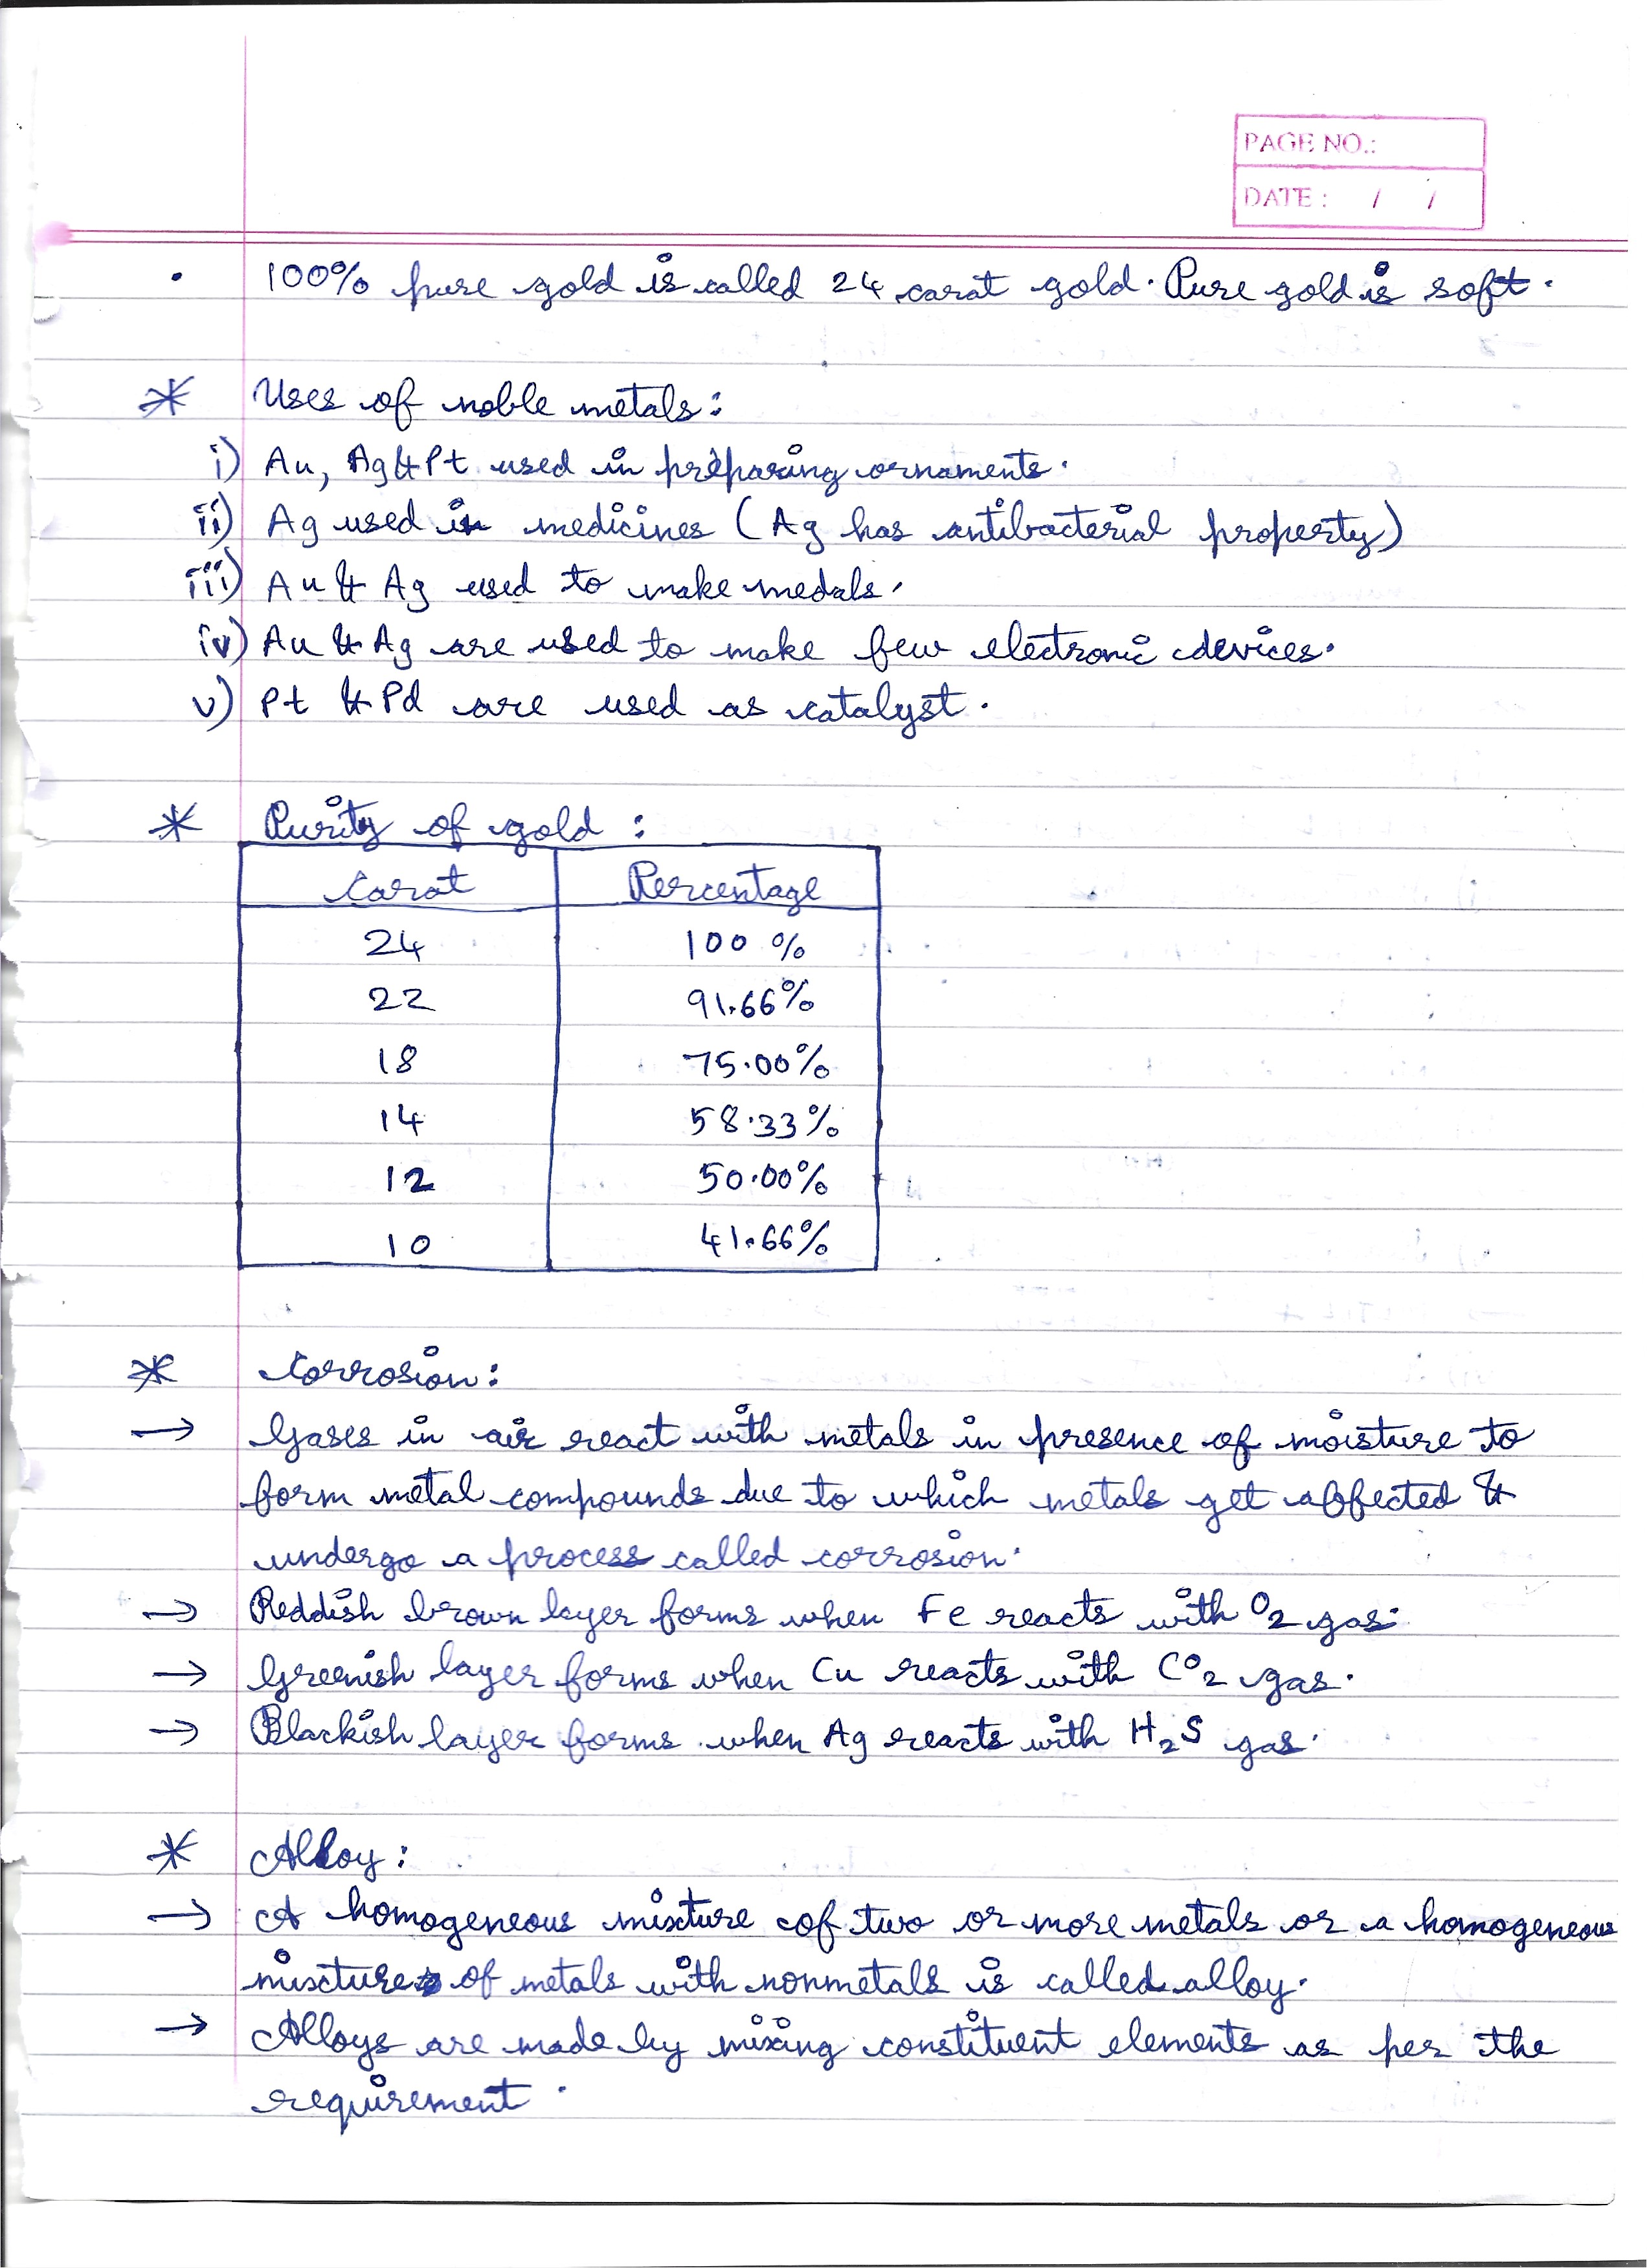 PAGE NO.:
DATE : / /
• 100% pure gold is called 24 carat gold. Pure gold is soft.
* Uses of noble metals:
i) Au, Ag & Pt used in preparing ornaments.
ii) Ag used in medicines (Ag has antibacterial property)
iii) Au & Ag used to make medals.
iv) Au & Ag are used to make few electronic devices.
v) Pt & Pd are used as catalyst.
* Purity of gold :
Carat Percentage
24 100 %
22 91.66%
18 75.00%
14 58.33%
12 50.00%
10 41.66%
* Corrosion:
→ Gases in air react with metals in presence of moisture to
form metal compounds due to which metals get affected &
undergo a process called corrosion.
→ Reddish brown layer forms when Fe reacts with O2 gas.
→ Greenish layer forms when Cu reacts with CO2 gas.
→ Blackish layer forms when Ag reacts with H2S gas.
* Alloy:
→ A homogeneous mixture of two or more metals or a homogeneous
mixture of metals with nonmetals is called alloy.
→ Alloys are made by mixing constituent elements as per the
requirement.